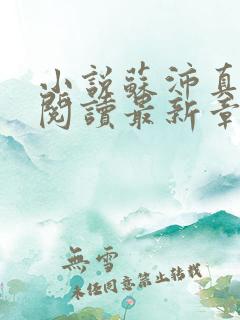 小說蘇沛真
閱讀最新章
無雪
未經同意禁止轉載